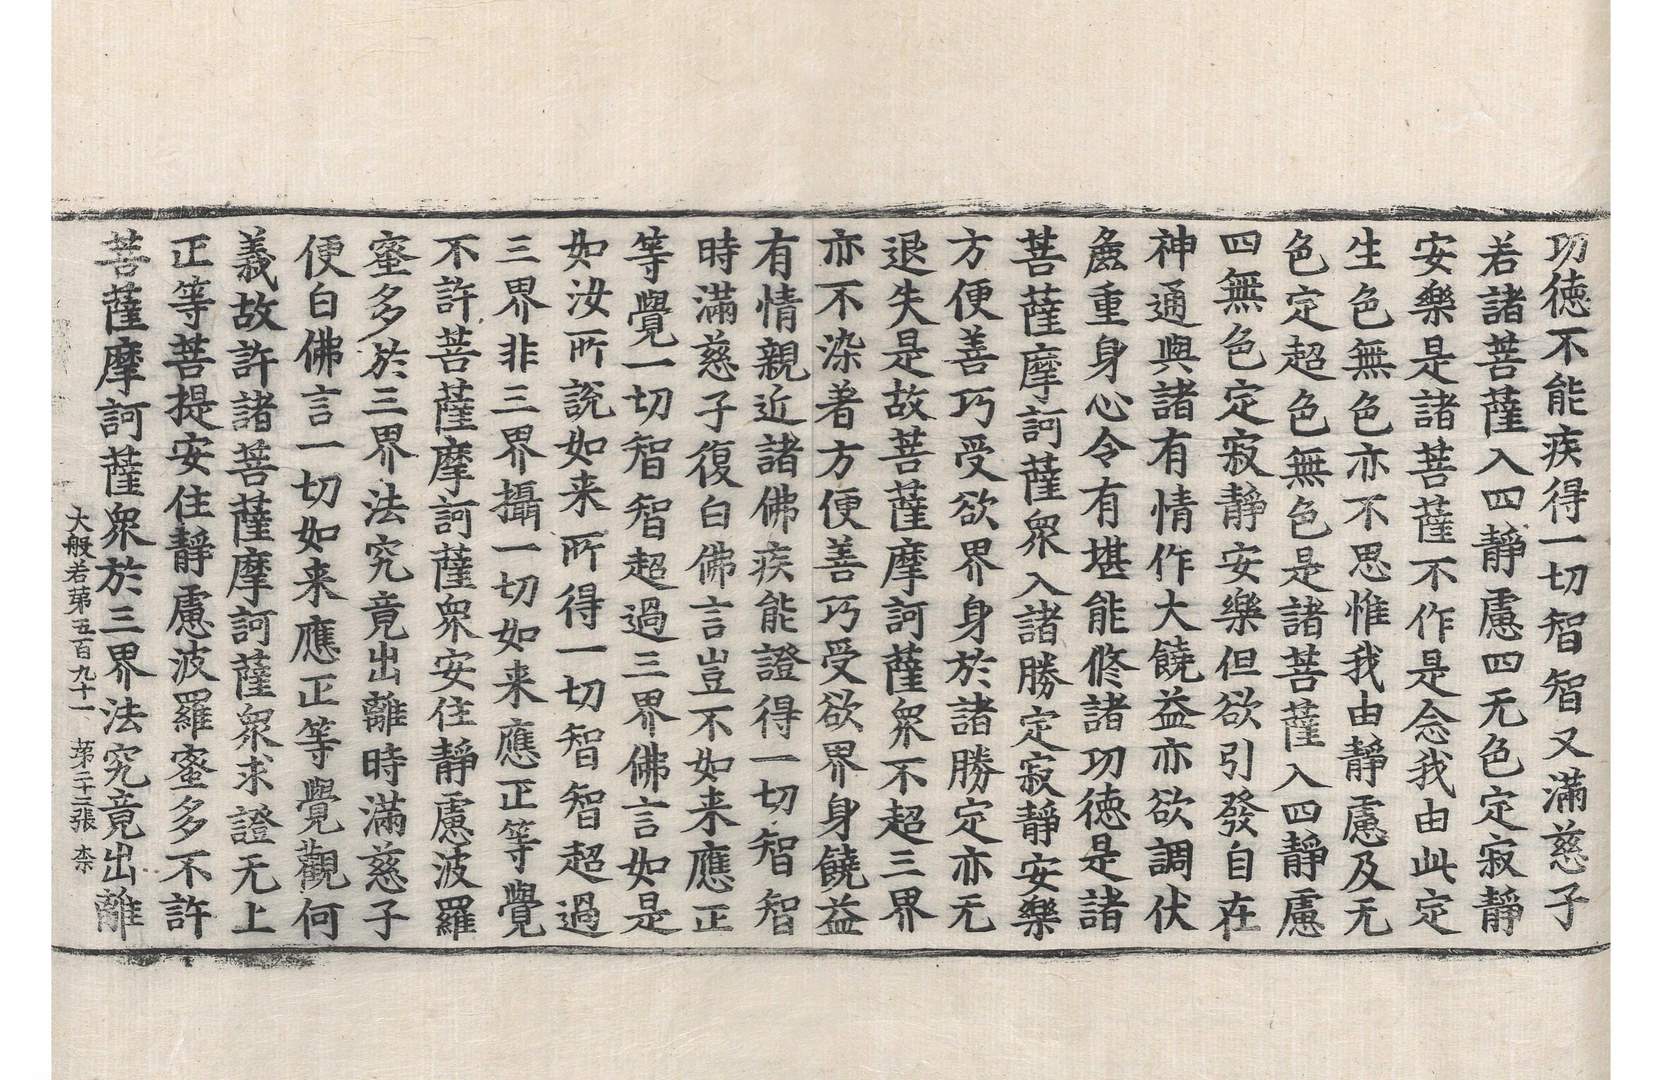 功德不能疾得一切智智又滿慈子
若諸菩薩入四靜慮四无色定寂靜
安樂是諸菩薩不作是念我由此定
生色無色亦不思惟我由靜慮及无
色定超色無色是諸菩薩入四靜慮
四無色定寂靜安樂但欲引發自在
神通與諸有情作大饒益亦欲調伏
麁重身心令有堪能修諸功德是諸
菩薩摩訶薩衆入諸勝定寂靜安樂
方便善巧受欲界身於諸勝定亦无
退失是故菩薩摩訶薩衆不超三界
亦不染著方便善巧受欲界身饒益
有情親近諸佛疾能證得一切智智
時滿慈子復白佛言豈不如来應正
等覺一切智智超過三界佛言如是
如汝所說如来所得一切智智超過
三界非三界攝一切如来應正等覺
不許菩薩摩訶薩衆安住靜慮波羅
蜜多於三界法究竟出離時滿慈子
便白佛言一切如来應正等覺觀何
義故許諸菩薩摩訶薩衆求證无上
正等菩提安住靜慮波羅蜜多不許
菩薩摩訶薩衆於三界法究竟出離
大般若第五百九十一 第二十二張 柰